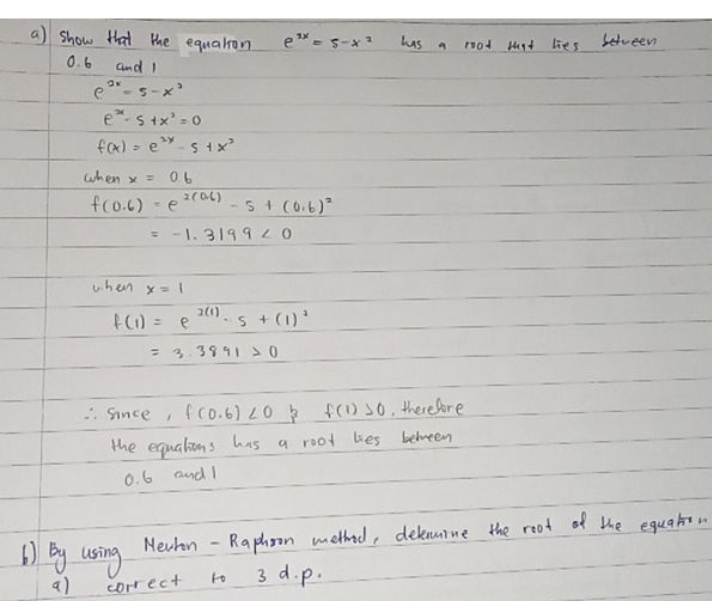 a) Show that the equation e²ˣ = 5-x² has a root that lies between
0.6 and 1
e²ˣ = 5-x²
e²ˣ - 5 + x² = 0
f(x) = e²ˣ - 5 + x²
when x = 0.6
f(0.6) = e²⁽⁰·⁶⁾ - 5 + (0.6)²
= -1.3199 < 0
when x = 1
f(1) = e²⁽¹⁾ - 5 + (1)²
= 3.3891 > 0
∴ Since, f(0.6) < 0 & f(1) > 0, therefore
the equations has a root lies between
0.6 and 1
b) By using Newton - Raphson method, determine the root of the equation
a) correct to 3 d.p.